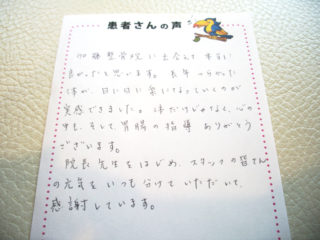 患者さんの声
加藤整骨院に出会えて本当に
良かったと思います。長年つらかった
体が、日に日に楽になっていくのが
実感できました。体だけじゃなく、心の
中も、そして、胃腸の指導ありがとう
ございます。
院長先生をはじめ、スタッフの皆さん
の元気をいつも分けていただいて、
感謝しています。